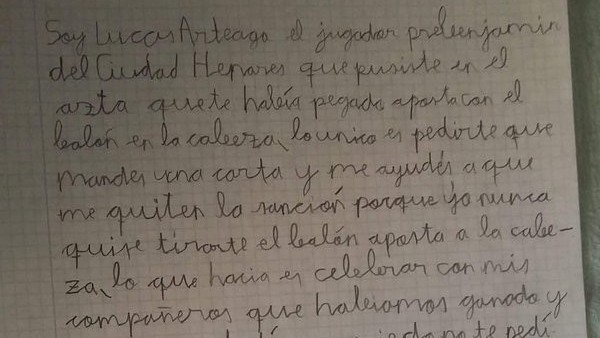 Soy Lucas Arteaga el jugador prebenjamin
del Ciudad Henares que pusiste en el
azta que te había pegado aposta con el
balón en la cabeza, lo unico es pedirte que
mandes una carta y me ayudes a que
me quiten la sanción porque yo nunca
quise tirarte el balón aposta a la cabe-
za, lo que hacia es celebrar con mis
compañeros que habiamos ganado y
no te pedí-